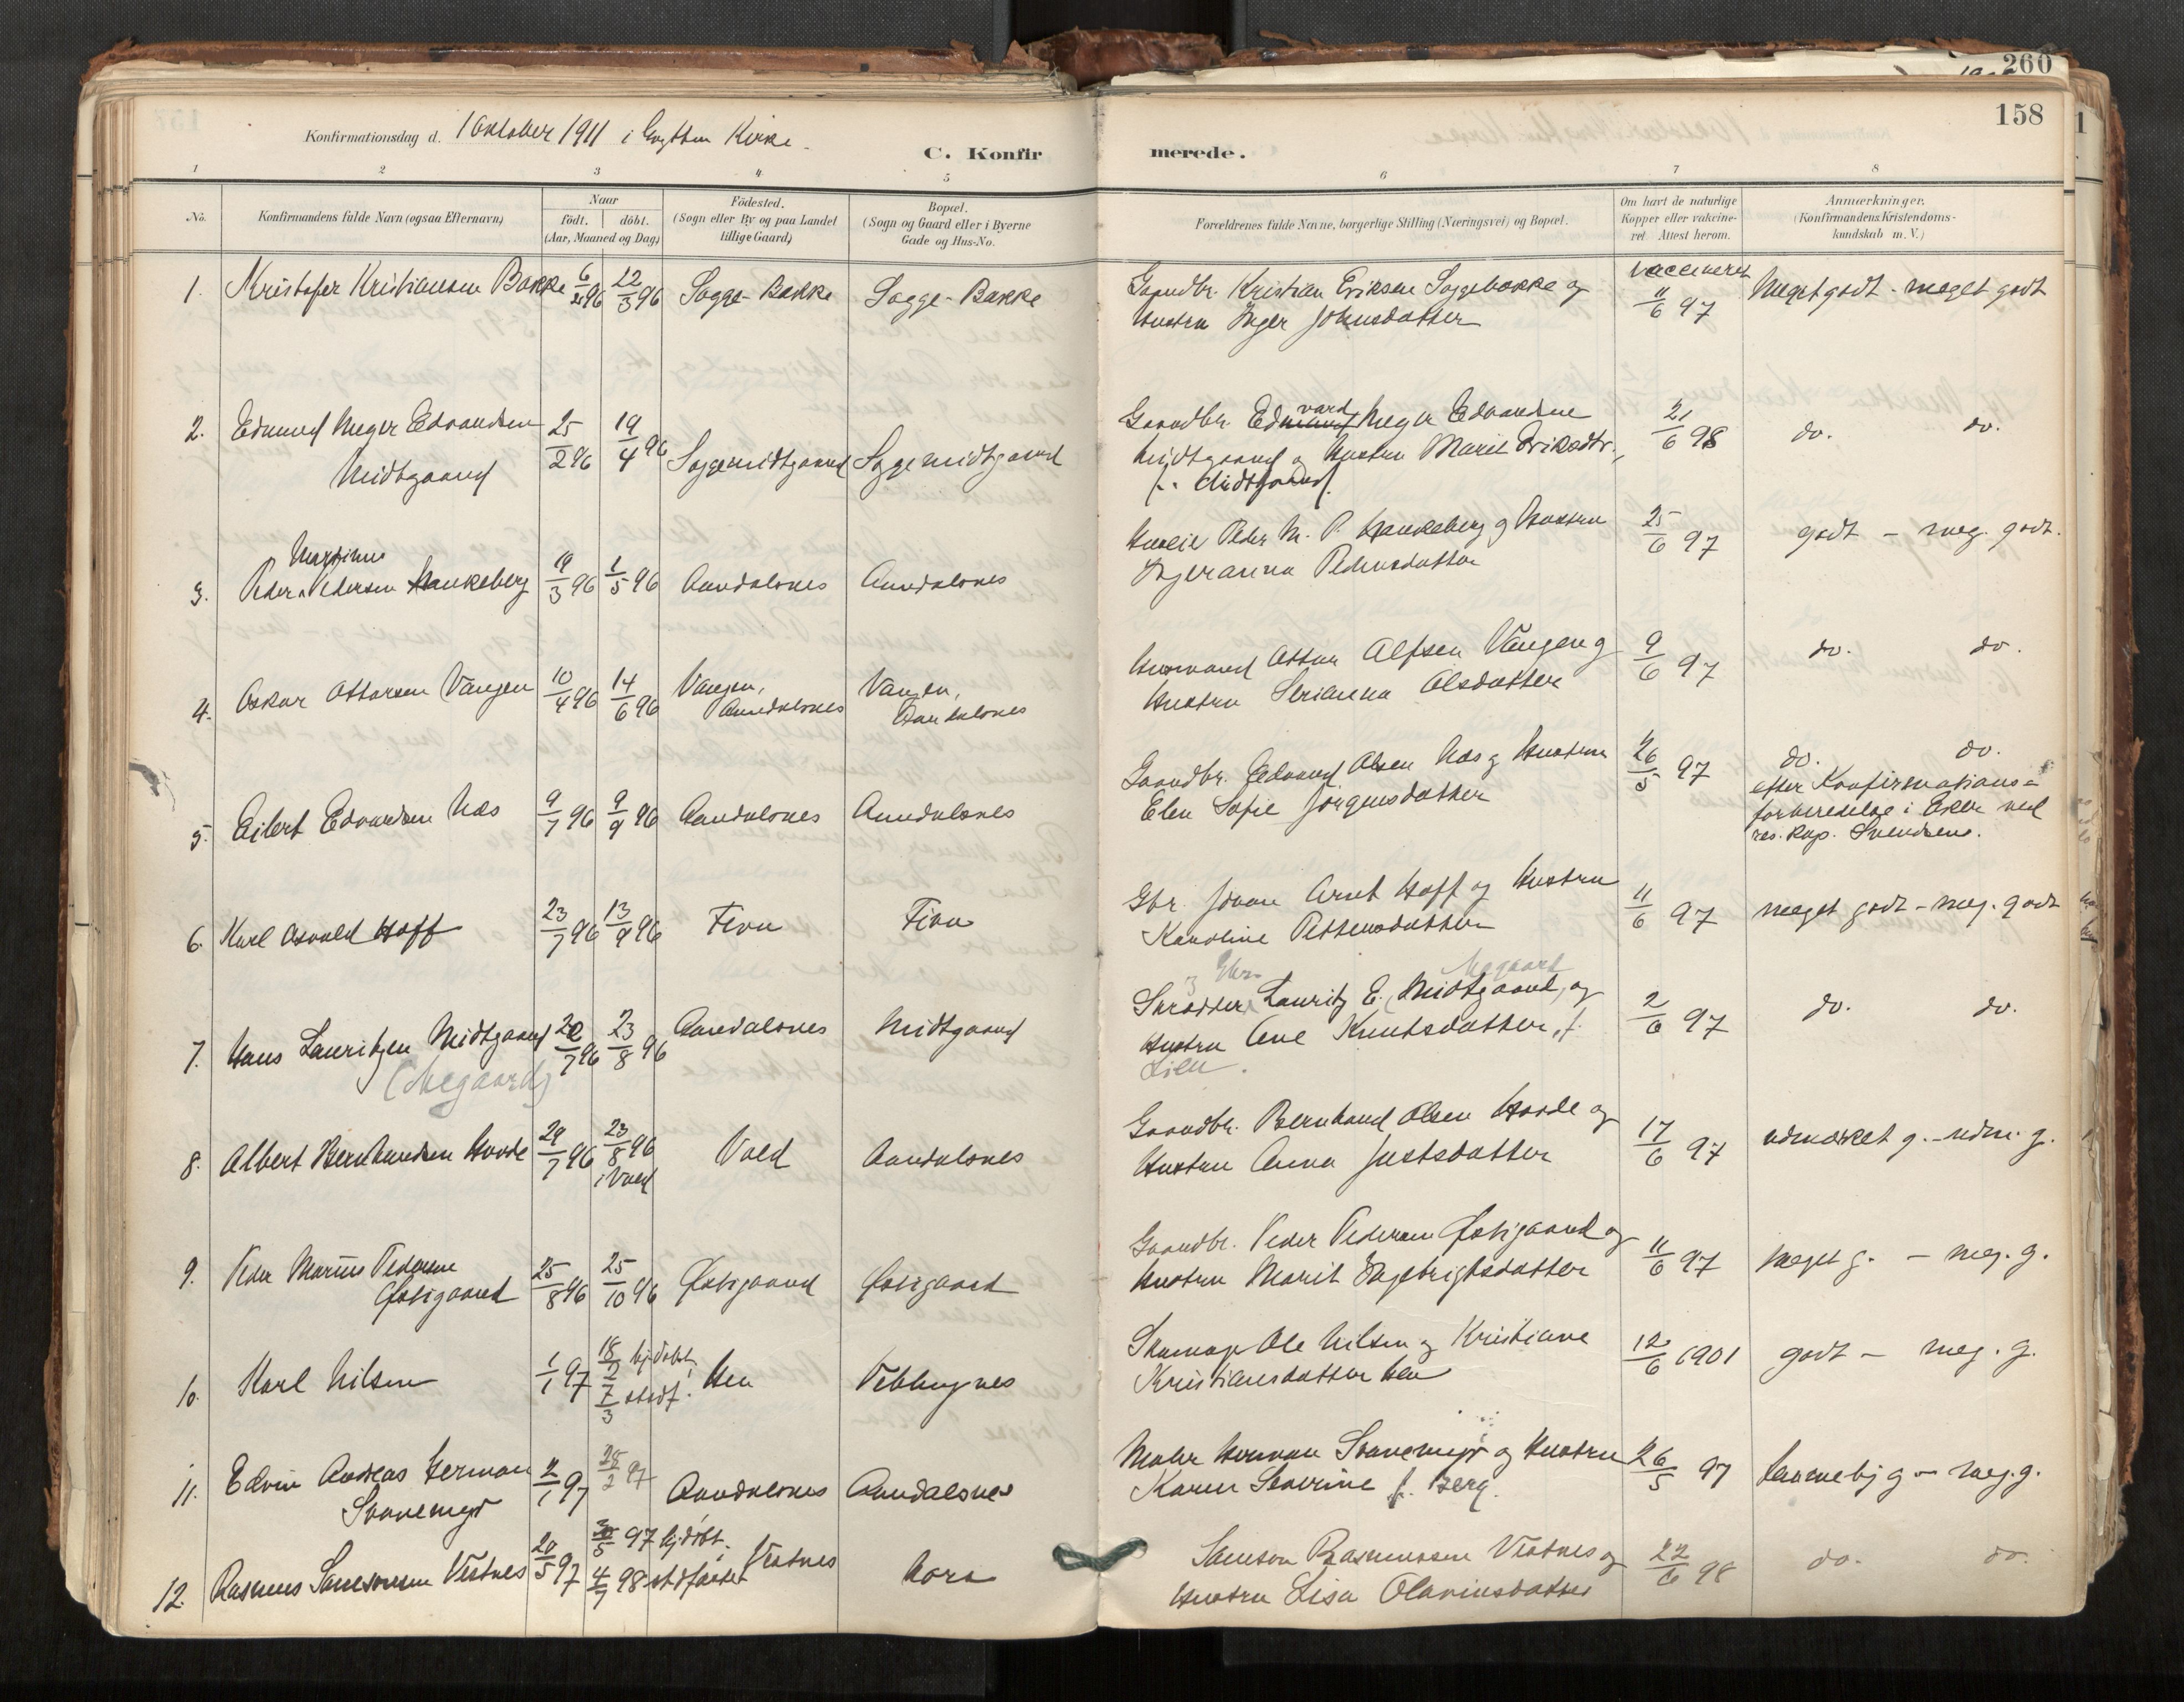 260
158
Konfirmationsdag d. 1 Oktober 1911 i Grytten Kirke.
C. Konfirmerede.
1 2 3 4 5 6 7 8
No.
Konfirmandens fulde Navn (ogsaa Efternavn)
Naar
födt. döbt.
(Aar, Maaned og Dag)
Födested.
(Sogn eller By og paa Landet
tillige Gaard)
Bopæl.
(Sogn og Gaard eller i Byerne
Gade og Hus-No.
Forældrenes fulde Navne, borgerlige Stilling (Næringsvei) og Bopæl.
Om havt de naturlige
Kopper eller vakcine-
ret. Attest herom.
Anmærkninger.
(Konfirmandens Kristendoms-
kundskab m. V.)
1. Kristofer Kristiansen Bakke 6/2 96 22/3 96 Sogge-Bakke Sogge-Bakke
Gaardbr. Kristian Eriksen Soggebakke og
Hustru Inger Johnsdatter
vaccineret
11/6 97
Meget godt - meget godt
2. Edmund Meyer Edvardsen
Midtgaard
25/2 96 19/4 96 Soggemidtgaard Soggemidtgaard
Gaardbr. Edmund vard Meyer Edvardsen
Midtgaard og Hustru Marit Eriksdtr.,
f. Midtgaard.
21/6 98 do. do.
3. Peder Martinus Pedersen Haukeberg 19/3 96 1/5 96 Aandalsnes Aandalsnes
Peder M. P. Haukeberg og Hustru
Ingeranna Pedersdatter
25/6 97 godt - meg. godt.
4. Oskar Ottarsen Vangen 10/4 96 14/6 96 Vangen,
Aandalsnes
Vangen,
Aandalsnes
Ottar Alfsen Vangen og
Hustru Serianna Olsdatter
9/6 97 do. do.
5. Eilert Edvardsen Næs 9/7 96 9/9 96 Aandalsnes Aandalsnes
Gaardbr. Edvard Olsen Næs og Hustru
Elen Sofie Jörgensdatter
26/5 97 do. do.
efter Konfirmations-
forberedelse i Eker ved
res. kap. Svendsen.
6. Karl Osvald Hoff 23/7 96 13/9 96 Fiva Fiva
Gbr. Johan Arnt Hoff og Hustru
Karoline Pettersdatter
11/6 97 meget godt - meg. godt
7. Hans Lauritzen Midtgaard
(Negaard)
22/7 96 23/8 96 Aandalsnes Midtgaard
Skrædder og Gbr. Lauritz E. Midtgaard, og Negaard
Hustru Ane Knutsdatter, f.
Lien.
2/6 97 do. do.
8. Albert Bernhardsen Hovde 29/7 96 23/8 96
i Vold
Vold Aandalsnes
Gaardbr. Bernhard Olsen Hovde og
Hustru Anna Justsdatter
17/6 97 udmærket g. - udm. g.
9. Peder Marius Pedersen
Östigaard
25/8 96 25/10 96 Östigaard Östigaard
Gaardbr. Peder Pedersen Östigaard og
Hustru Marit Ingebrigtsdatter
11/6 97 meget g. - meg. g.
10. Karl Nilsen 1/1 97 18/2 hj.döbt,
7/3 stadf.
Hen Veblungnes
Skomager Ole Nilsen og Kristiane
Kristiansdatter Hen
12/6 1901 godt - meg. g.
11. Edvin Andreas Herman
Svanemyr
2/1 97 28/2 97 Aandalsnes Aandalsnes
Maler Herman Svanemyr og Hustru
Karen Severine f. Berg.
26/5 97 g - meg. g.
12. Rasmus Samsonsen Vestnes 20/5 97 30/5 97 hj.döbt.
4/7 98 stadfæstet
Vestnes Mora
Samson Rasmussen Vestnes og
Hustru Lisa Olaviusdatter
22/6 98 do. do.